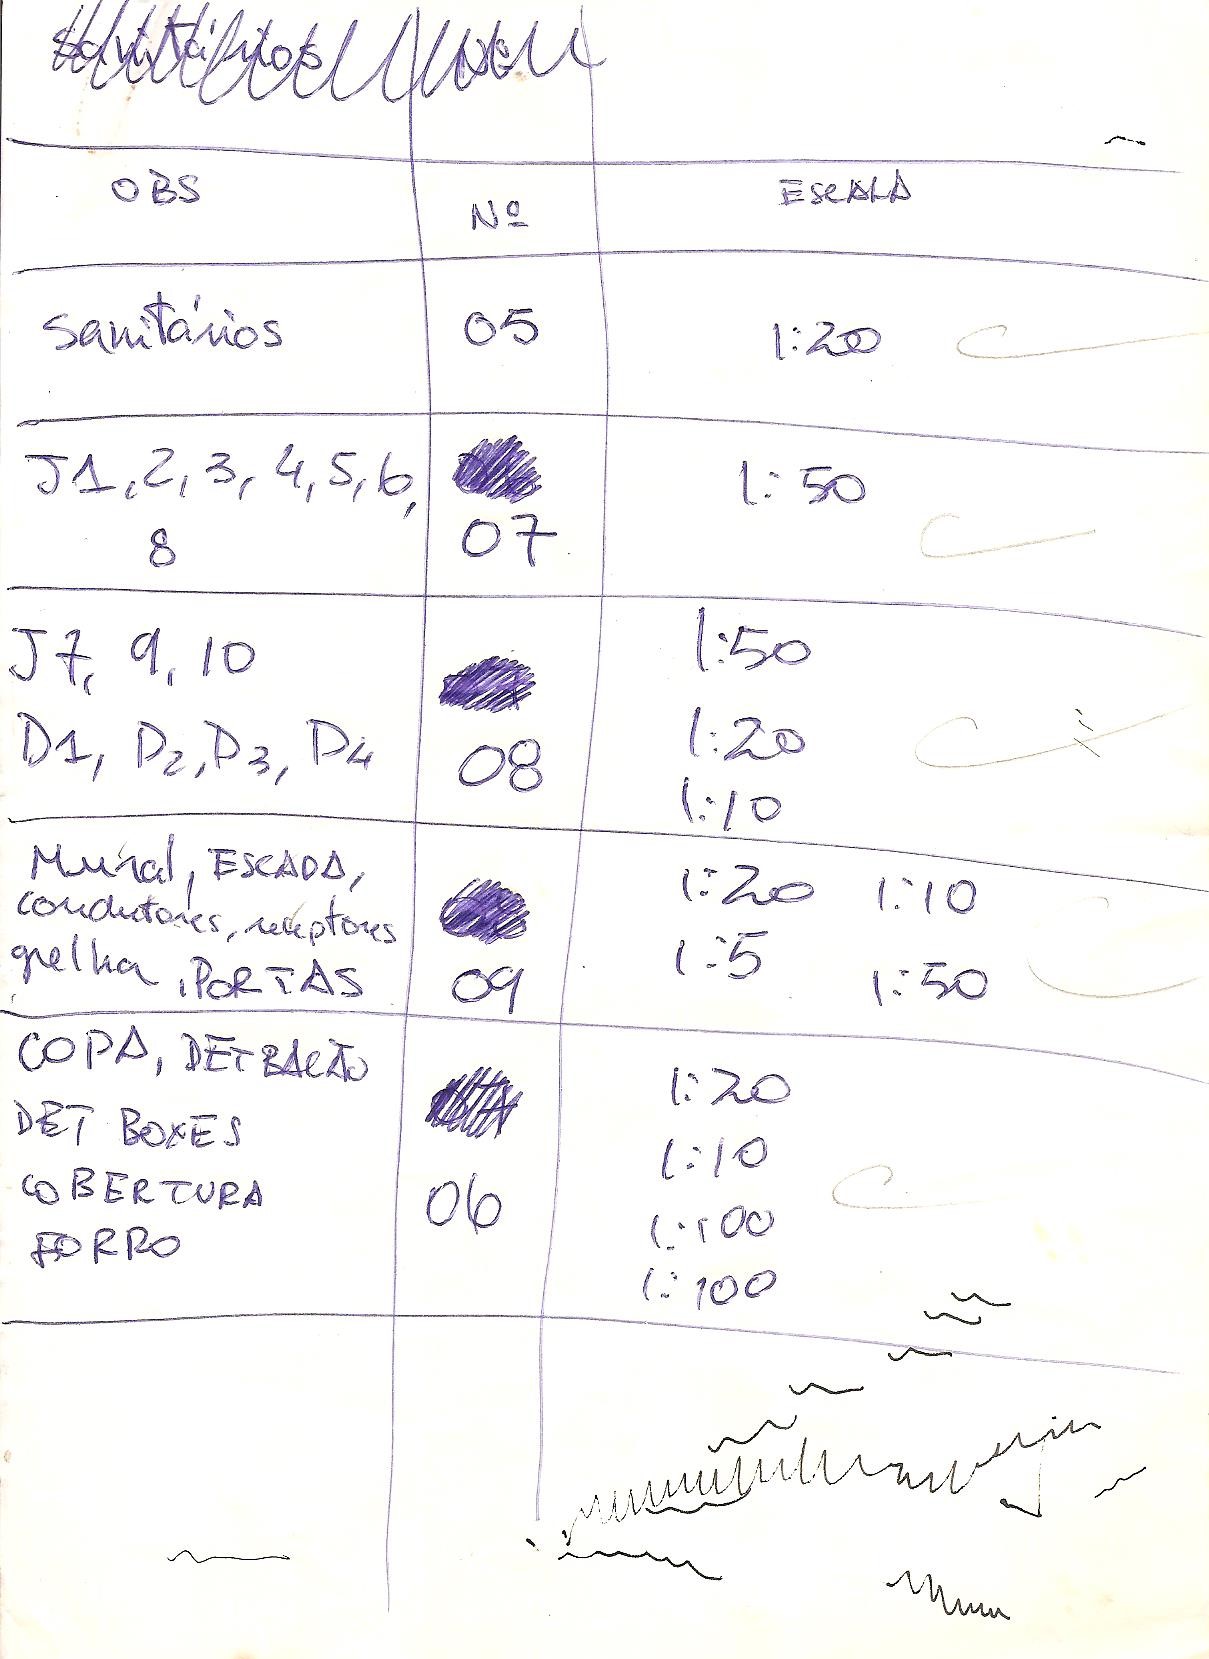 Sanitários
OBS Nº ESCALA
Sanitários 05 1:20
J1, 2, 3, 4, 5, 6, 1:50
8 07
J7, 9, 10 1:50
D1, D2, D3, D4 08 1:20
1:10
Mural, ESCADA, 1:20 1:10
condutores, receptores
grelha, PORTAS 09 1:5 1:50
COPA, DET BALCÃO 1:20
DET BOXES 1:10
COBERTURA 06 1:100
FORRO 1:100